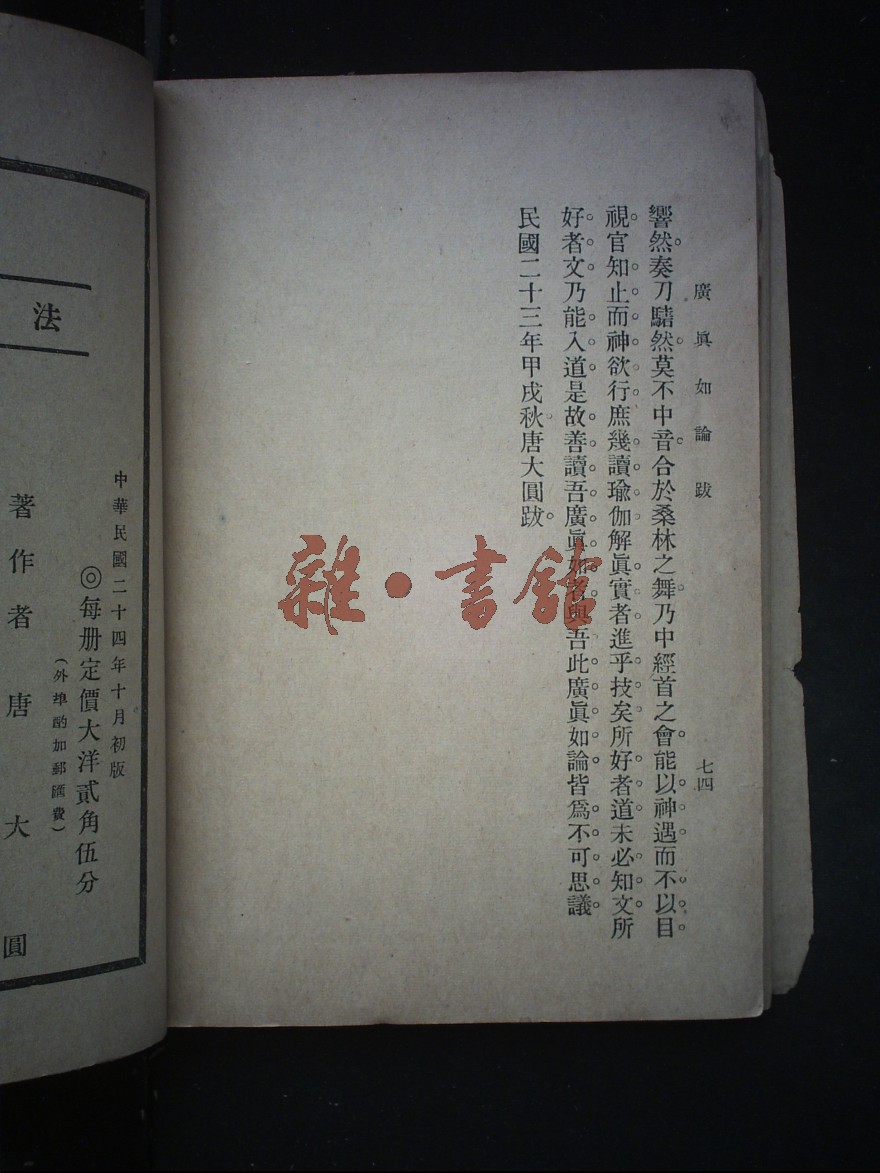 廣眞如論跋
七四
響然奏刀騞然莫不中音合於桑林之舞乃中經首之會能以神遇而不以目
視官知止而神欲行庶幾讀瑜伽解眞實者進乎技矣所好者道未必知文所
好者文乃能入道是故善讀吾廣眞如者與吾此廣眞如論皆爲不可思議
民國二十三年甲戌秋唐大圓跋
雜·書館
中華民國二十四年十月初版
◎每册定價大洋貳角伍分
(外埠酌加郵匯費)
著作者唐大圓
法